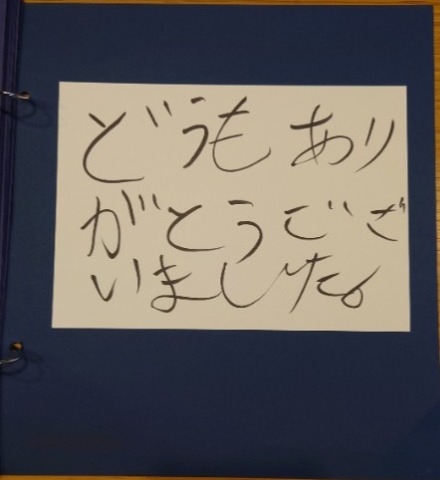 どうも あり
がとうござ
いました。